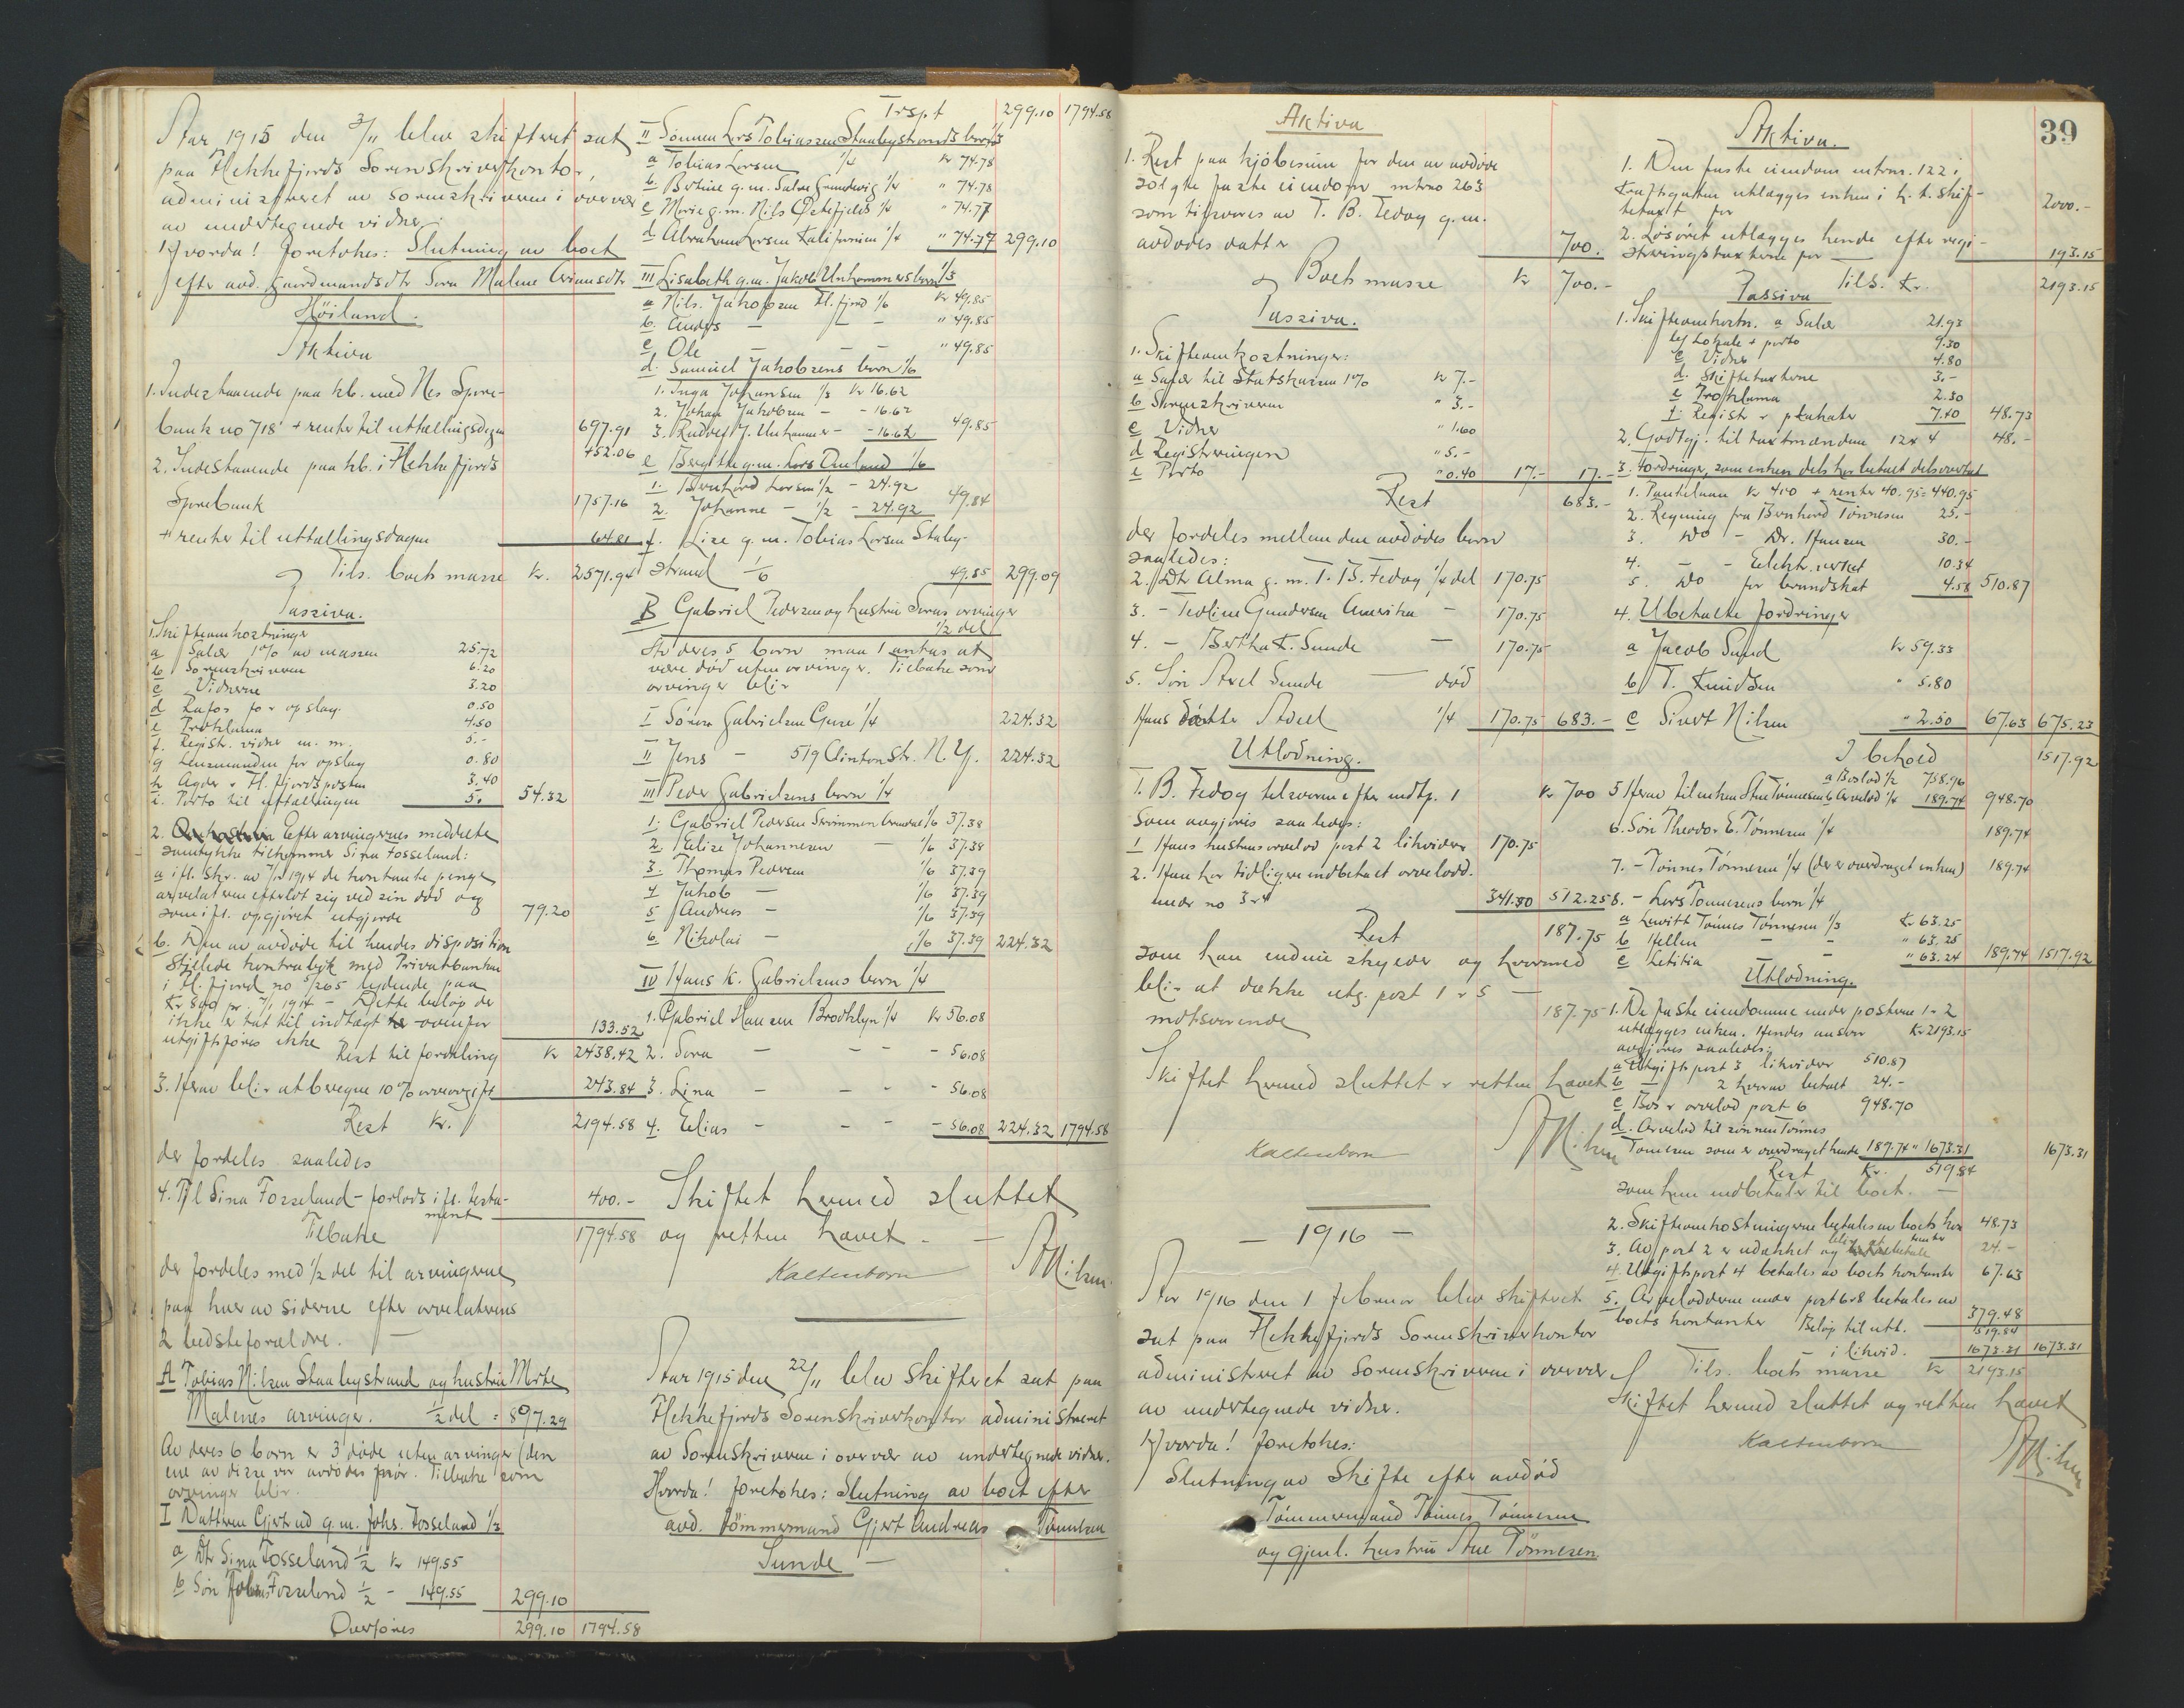 Aar 1915 den 3/11 blev skifteret sat
paa Flekkefjords Sorenskriverkontor,
administreret av sorenskriveren i overvær
av undertegnede vidner.
Hvorda! foretokes: Slutning av boet
efter avd. gaardmandsdtr Sara Malene
Høiland.
Aktiva
1. Indestaaende paa kb. med Nes Spare-
bank no 718 + renter til uttællingsdagen 697.91
+52.06
2. Indestaaende paa kb. i Flekkefjords
Sparebank 1757.16
+ renter til uttællingsdagen 64.81
Tils. boets masse Kr. 2571.94
Passiva.
1. Skifteomkostninger
a Salær 1% av massen 25.72
b Sorenskriveren 6.20
c Vidnerne 3.20
d for opslag 0.50
e Proklama 4.50
f. Registr. vidner m. m. 5.-
g Lensmanden for opslag 0.80
h Agder & Fl. fjordsposten 3.40
i. Porto til uttællingen 5. 54.32
2. Efter arvingernes meddelte
samtykke tilkommer Sina Fosseland:
a ifl. skr. av 1914 de kontante penge
arvelateren efterlot sig ved sin død og
som ifl. opgjøret utgjorde 79.20
b. Den av avdøde til hendes disposition
stillede kontrabok med Privatbanken
i Fl. fjord no 5265 lydende paa
Kr 800 pr. 1914 - Dette beløp der
ikke er tat til indtægt ovenfor
utgiftsføres ikke 133.52
Rest til fordeling Kr 2438.42
3. Herav blir at beregne 10% arveavgift 243.84
Rest Kr. 2194.58
der fordeles saaledes
4. Til Sina Fosseland - forlods ifl. testa-
ment 400.-
Tilbake 1794.58
der fordeles med 1/2 del til arvingerne
paa hver av siderne efter arvelaterens
2 bedsteforældre. -
A Tobias Nilsen Staalegstrand og hustru Marte
Malenes arvinger. 1/2 del = 897.29
Av deres 6 børn er 3 døde uten arvinger (den
ene av disse var avdødes far. Tilbake som
arvinger blir.
I Datteren Gjertrud g.m. Johs. Fosseland 1/3
a Dtr Sina Fosseland 1/2 Kr 149.55
b Søn Tobias Fosseland 1/2 - 149.55 299.10
Overføres 299.10 1794.58
Trsp.t 299.10 1794.58
II Sønnen Lars Tobiassen Staalegstrands børn 1/3
a Tobias Larsen 1/4 Kr 74.78
b. Bertine g.m. Salve Grundevig 1/4 " 74.78
c Marie g.m. Nils Østefjells 1/4 " 74.77
d Abraham Larsen Kalifornien 1/4 " 74.77 299.10
III Lisabeth g.m. Jakob Urhammers børn 1/3
a Nils Jakobsen Fl. fjord 1/6 Kr 49.85
b. Anders - - - " 49.85
c Ole - - - " 49.85
d. Samuel Jakobsens børn 1/6
1. Inga Johansen 1/3 Kr 16.62
2. Johan Jakobsen - - 16.62
3. Rudolf J. Urhammer - - 16.62 49.85
e Bergitte g.m. Lars Aneland 1/6
1. Bernhard Larsen 1/2 - 24.92
2. Johanne - 1/2 - 24.92 49.84
f. Lise g.m. Tobias Larsen Staleg-
strand 1/6 49.85 299.09
B Gabriel Pedersen og hustru Saras arvinger
1/2 del
Av deres 5 børn maa 1 antas at
være død uten arvinger. Tilbake som
arvinger blir
I Søren Gabrielsen 1/4 224.32
II Jens - 519 Clinton Str. N.Y. 224.32
III Peder Gabrielsens børn 1/4
1. Gabriel Pedersen 1/6 37.38
2. Elise Johannesen - 1/6 37.38
3. Thomas Pedersen 1/6 37.39
4 Jakob - 1/6 37.39
5 Andreas - 1/6 37.39
6. Nikolai - 1/6 37.39 224.32
IV Hans K. Gabrielsens børn 1/4
1. Gabriel Hansen Brooklyn 1/4 Kr 56.08
2. Sara - - - - 56.08
3. Lina - - - - 56.08
4. Elias - - - - 56.08 224.32 1794.58
Skiftet hermed sluttet
og retten hævet. -
Kaltenborn
Aar 1915 den 22/11 blev skifteret sat paa
Flekkefjords Sorenskriverkontor administreret
av Sorenskriveren i overvær av undertegnede vidner.
Hvorda! foretokes: Slutning av boet efter
avd. tømmermand Gjert Andreas Tønnesen
Sunde -
Aktiva
1. Rest paa kjøbesum for den av avdøde
solgte faste eiendom mtrno 263
som tilsvares av T. B. Fedog g.m.
avdødes datter 700.
Boets masse Kr 700.-
Passiva.
1. Skifteomkostninger:
a Salær til Statskassen 1% Kr 7.-
b Sorenskriveren " 3.-
c Vidner " 1.60
d Registreringen " 5.-
e Porto " 0.40 17.- 17.-
Rest 683.-
der fordeles mellem den avdødes børn
saaledes:
2. Dtr Alma g.m. T. B. Fedog 1/4 del 170.75
3. - Teoline Gundersen Amerika - 170.75
4. - Bertha K. Sunde - 170.75
5. Søn Axel Sunde - død
Hans datter 1/4 170.75 683.-
Utlodning.
T. B. Fedog tilsvarer efter indtp. 1 Kr 700
som avgjøres saaledes:
1 Hans hustrus arvelod post 2 likviderer 170.75
2. Han har tidligere indbetalt arvelodd.
under no 3 & 4 341.50 512.25
Rest 187.75
som han endnu skylder og hvormed
blir at dække utg. post 1 & 5 -
motsvarende 187.75
Skiftet hermed sluttet & retten hævet
Kaltenborn
- 1916 -
Aar 1916 den 1 februar blev skifteret
sat paa Flekkefjords Sorenskriverkontor
administreret av Sorenskriveren i overvær
av undertegnede vidner.
Hvorda! foretokes:
Slutning av Skifte efter avdød
Tømmermand Tønnes Tønnesen
og gjenl. hustru Ane Tønnesen.
39
Aktiva.
1. Den faste eiendom mtrnr. 122 i
utlægges enken i h. t. skif-
tetaxt for 2000.-
2. Løsøret utlægges hende efter regi-
streringstaxterne for 193.15
Tils. Kr. 2193.15
Passiva
1. Skifteomkostn. a Salær 21.93
b Lokale + porto 9.30
c Vidner 4.80
d. Skiftetaxterne 3.-
e Proklama 2.30
f. Registr. & plakater 7.40 48.73
2. Godtgj. til taxtmændene 12x4 48.-
3. Fordringer, som enken dels har betalt dels overtat
1. Pantelaan Kr 400 + renter 40.95 = 440.95
2. Regning fra Bernhard Tønnesen 25.-
3. Do - Dr. Hansen 30.-
4. - - Elektr. verket 10.34
5. Do for brandskat 4.58 510.87
4. Ubetalte fordringer
a Jacob Sund Kr 59.33
b T. Knudsen " 5.80
c Sivert Nilsen " 2.50 67.63 675.23
I behold 1517.92
5 Herav til enken Ane Tønnesen a Boslod 1/2 758.96
b Arvelod 1/4 189.74 948.70
6. Søn Theodor E. Tønnesen 1/4 189.74
7. - Tønnes Tønnesen 1/4 (der er overdraget enken) 189.74
8. - Lars Tønnesens børn 1/4
a Lewitt Tønnes Tønnesen 1/3 Kr 63.25
b Hellen - - " 63.25
c Letitia - " 63.24 189.74 1517.92
Utlodning.
1. De faste eiendomme under posterne 1-2
utlægges enken. Hendes ansvar Kr 2193.15
avgjøres saaledes:
a Utgiftspost 3 likvider 510.87
b - 2 hvorav betalt 24.-
c Bos & arvelod post 6 948.70
d. Arvelod til sønnen Tønnes
Tønnesen som er overdraget hende 189.74 " 1673.31 1673.31
Rest Kr. 519.84
som hun indbetaler til boet. -
2. Skifteomkostningerne betales av boets kon 48.73
3. Av post 2 er udækket og betale 24.-
4. Utgiftspost 4 betales av boets kontanter 67.63
5. Arvelodderne under post 6 & 8 betales av
boets kontanter 379.48
Beløp til utt. 519.84
i likvid. 1673.31 1673.31
Tils. boets masse Kr 2193.15
Skiftet hermed sluttet og retten hævet
Kaltenborn